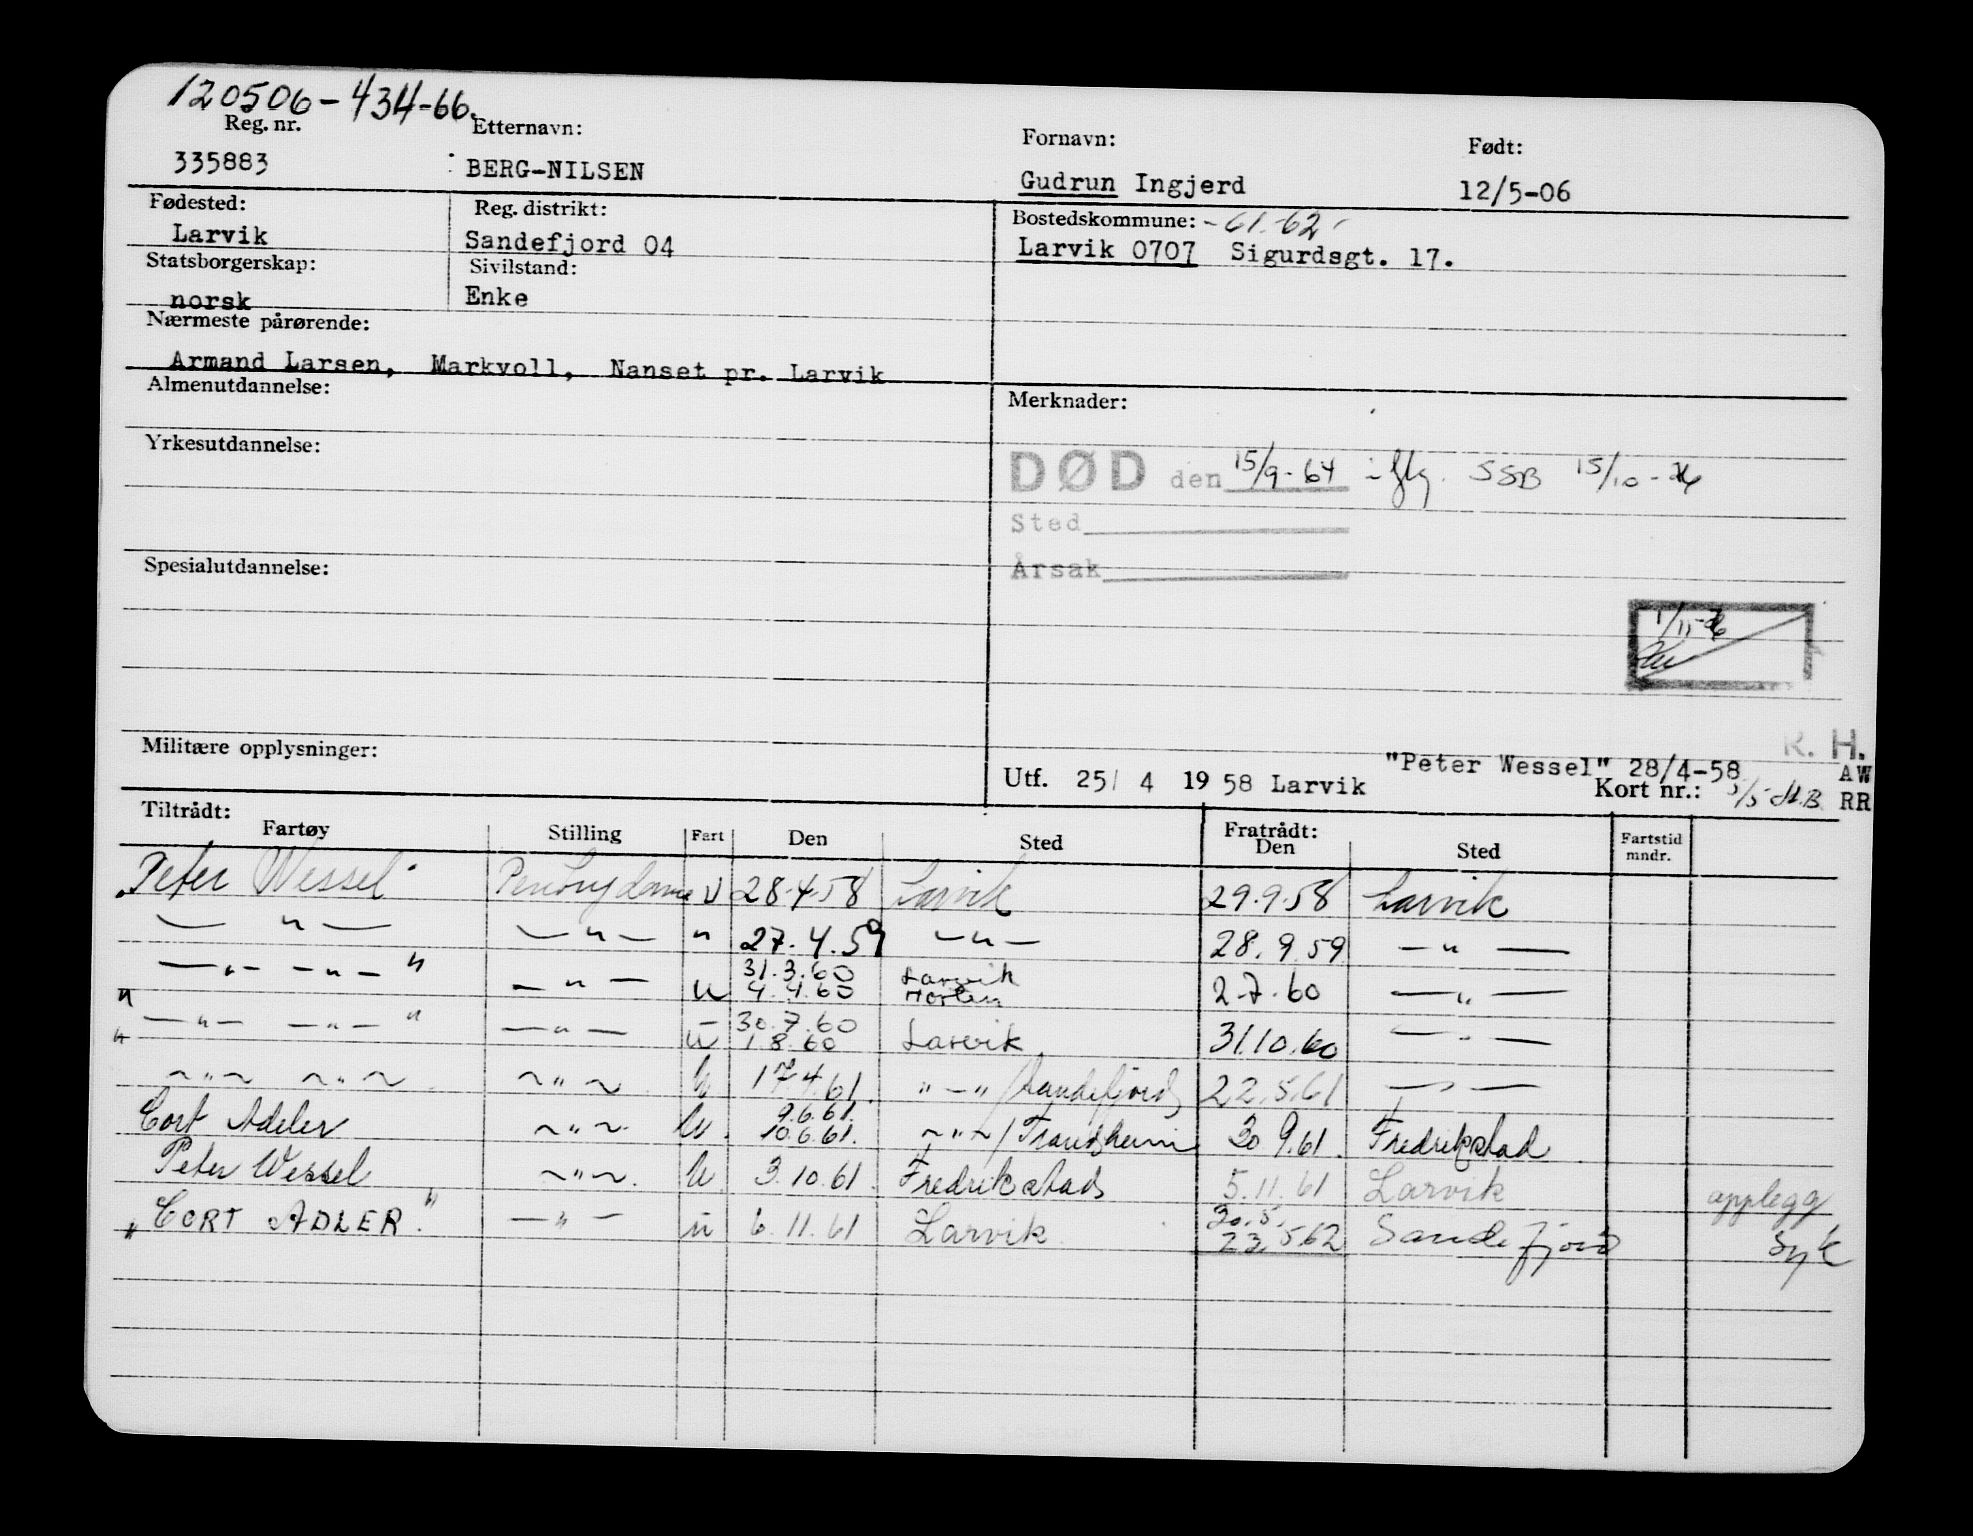 120506-434-66.
Reg. nr. Etternavn: Fornavn: Født:
335883 BERG-NILSEN Gudrun Ingjerd 12/5-06
Fødested: Reg. distrikt: Bostedskommune: -61-62-
Larvik Sandefjord 04 Larvik 0707 Sigurdsgt. 17.
Statsborgerskap: Sivilstand:
norsk Enke
Nærmeste pårørende:
Armand Larsen, Markvoll, Nanset pr. Larvik
Almenutdannelse: Merknader:
Yrkesutdannelse:
DØD den 15/9-64 iflg. SSB 15/10-
Sted
Årsak
Spesialutdannelse:
1/11-
R. H.
Militære opplysninger:
"Peter Wessel" 28/4-58 AW
Utf. 25/ 4 19 58 Larvik Kort nr.: RR
Tiltrådt: Fratrådt:
Fartøy Stilling Fart Den Sted Den Sted Fartstid mndr.
"Peter Wessel" U 28.4.58 Larvik 29.9.58 Larvik
— " — — " — " 27.4.59 — " — 28.9.59 — " —
— " — — " — " — " — U 31.3.60 Larvik
4.4.60 Horten 2.7.60 — " —
" — " — — " — " — " — U 30.7.60
1.8.60 Larvik 31.10.60 — " —
" ~ " ~ ~ " ~ ~ " ~ U 17.4.61 " — " / Sandefjord 22.5.61 — " —
Cort Adeler ~ " ~ U. 9.6.61.
10.6.61. ~ " ~ / Trondheim 30.9.61. Fredrikstad
Peter Wessel ~ " ~. U 3.10.61. Fredrikstad 5.11.61 Larvik opplegg
"CORT ADLER." — " — U 6.11.61 Larvik 20.5.
23.5.62 Sandefjord Syk